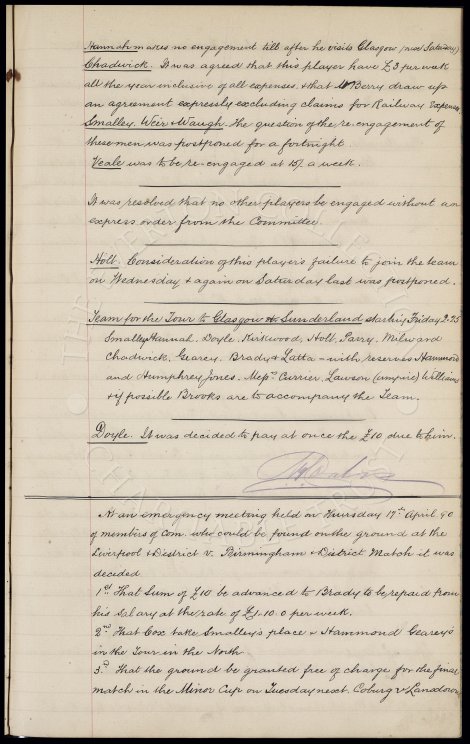 Hannah makes no engagement till after he visits Glasgow (next Saturday)
Chadwick. It was agreed that this player have £3 per week
all the year inclusive of all expenses, & that Mr Berry draw up
an agreement expressly excluding claims for Railway Expenses
Smalley, Weir & Waugh. The question of the re-engagement of
these men was postponed for a fortnight.
Veale was to be re-engaged at 15/- a week.
It was resolved that no other players be engaged without an
express order from the Committee
Holt. Consideration of this player's failure to join the team
on Wednesday & again on Saturday last was postponed.
Team for the Tour to Glasgow & Sunderland starting Friday 2-25
Smalley Hannah. Doyle. Kirkwood, Holt. Parry. Milward
Chadwick, Geary. Brady & Latta - with reserves Hammond
and Humphrey Jones. Messrs Currier, Lawson (umpire) Williams
& if possible Brooks are to accompany the Team.
Doyle. It was decided to pay at once the £10 due to him.
At an emergency meeting held on Thursday 17th April 90
of members of Com. who could be found on the ground at the
Liverpool & District v. Birmingham & District Match it was
decided
1st That Sum of £10 be advanced to Brady to be repaid from
his salary at the rate of £1-10.0 per week.
2nd That Cox take Smalley's place & Hammond Geary's
in the Tour in the North
3d That the ground be granted free of charge for the final
match in the Minor Cup on Tuesday next. Coburg v Lansdowne